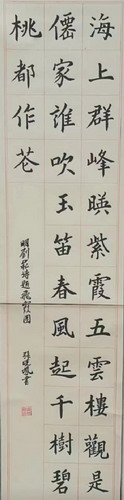 海上群峰暎紫霞五雲樓觀是
僊家誰吹玉笛春風起千樹碧
桃都作花
明劉菘詩題飛霞圖